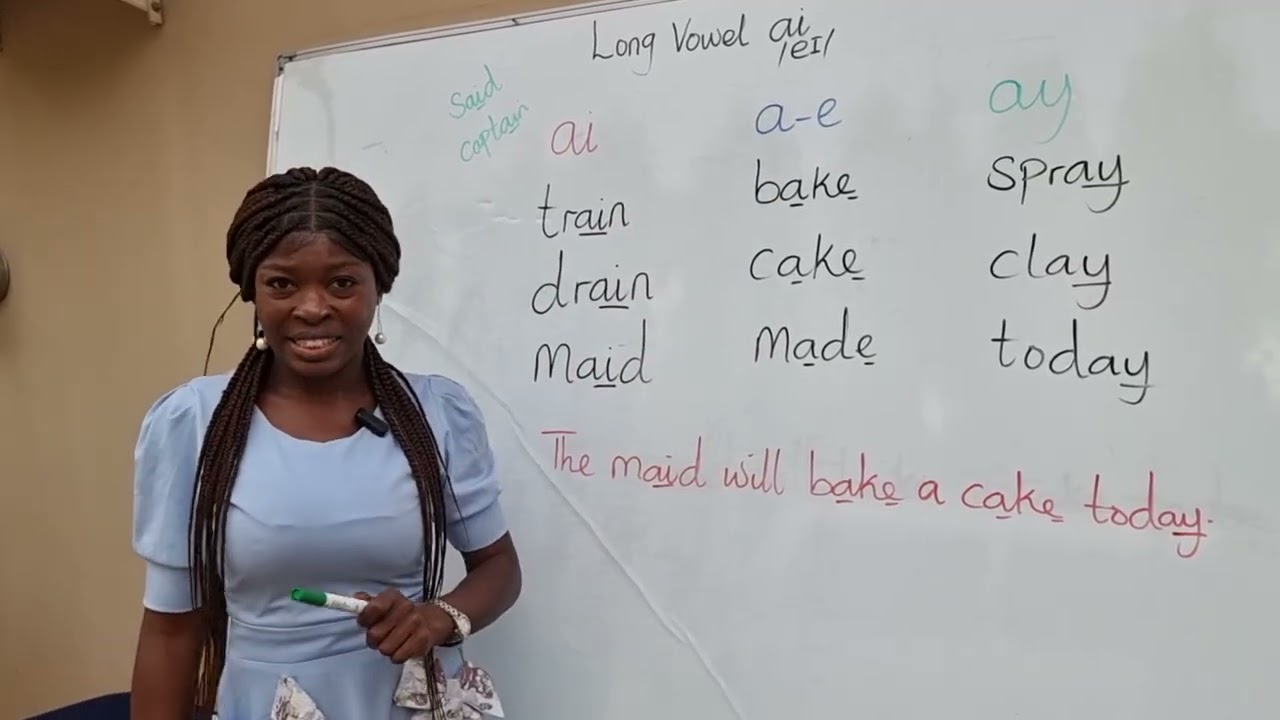 Long Vowel ai
/eɪ/
Said
captain
ai a-e ay
train bake spray
drain cake clay
maid made today
The maid will bake a cake today.